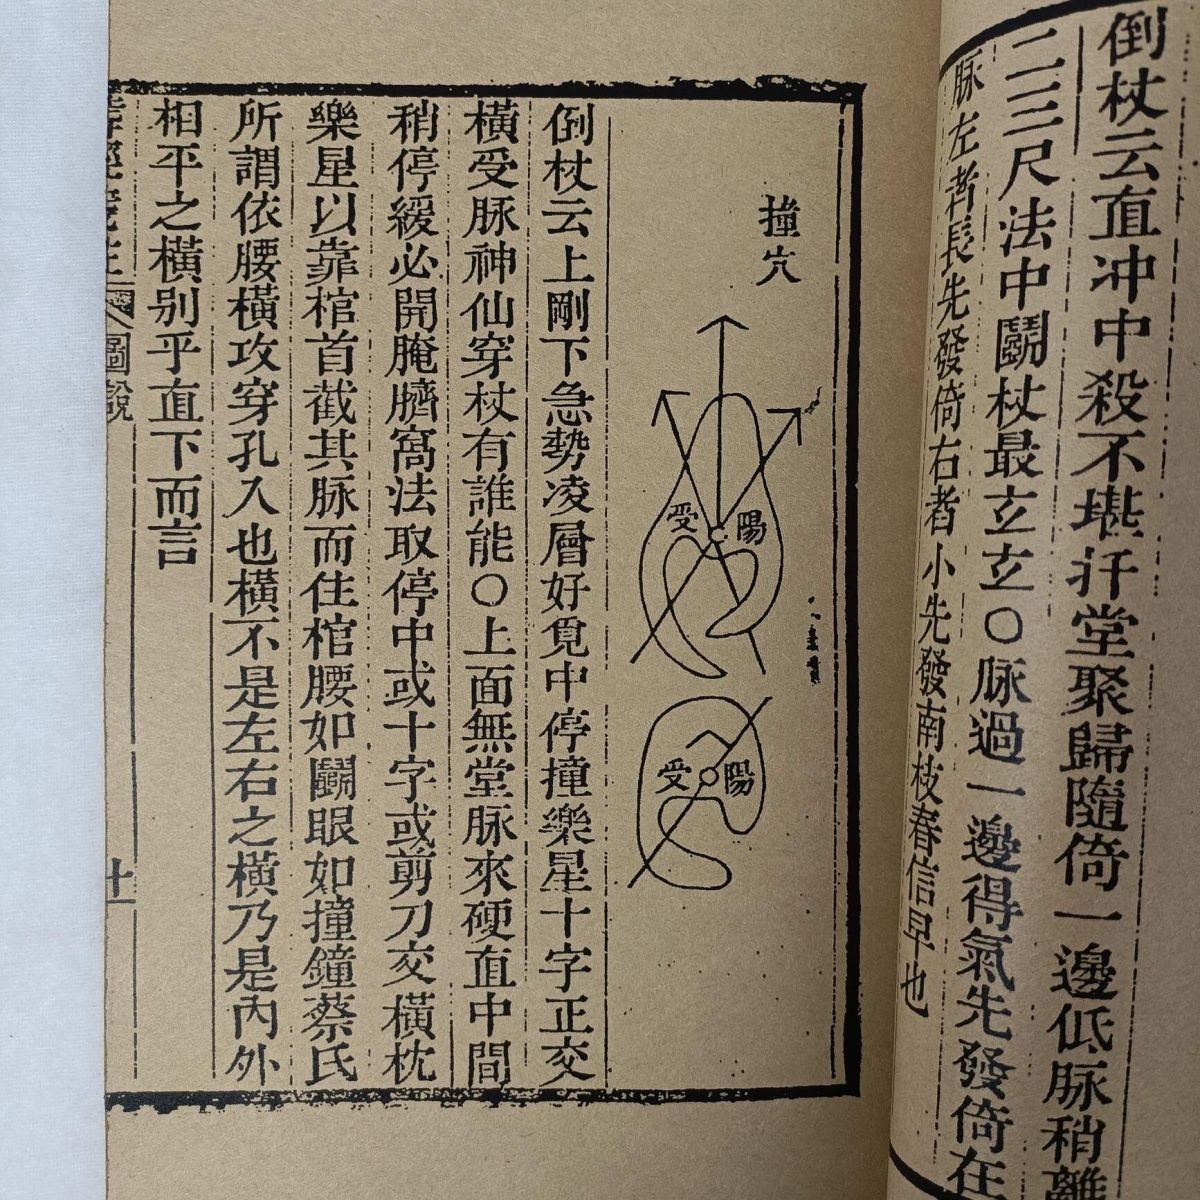 倒杖云直冲中殺不堪扦堂聚歸隨倚一邊低脉稍離
二三尺法中鬬杖最玄玄○脉過一邊得氣先發倚在
脉左者長先發倚右者小先發南枝春信早也
撞穴
受陽
受陽
倒杖云上剛下急勢凌層好覓中停撞樂星十字正交
橫受脉神仙穿杖有誰能○上面無堂脉來硬直中間
稍停緩必開腌臍窩法取停中或十字或剪刀交橫枕
樂星以靠棺首截其脉而住棺腰如鬬眼如撞鐘蔡氏
所謂依腰橫攻穿孔入也橫不是左右之橫乃是內外
相平之橫别乎直下而言
圖說
十